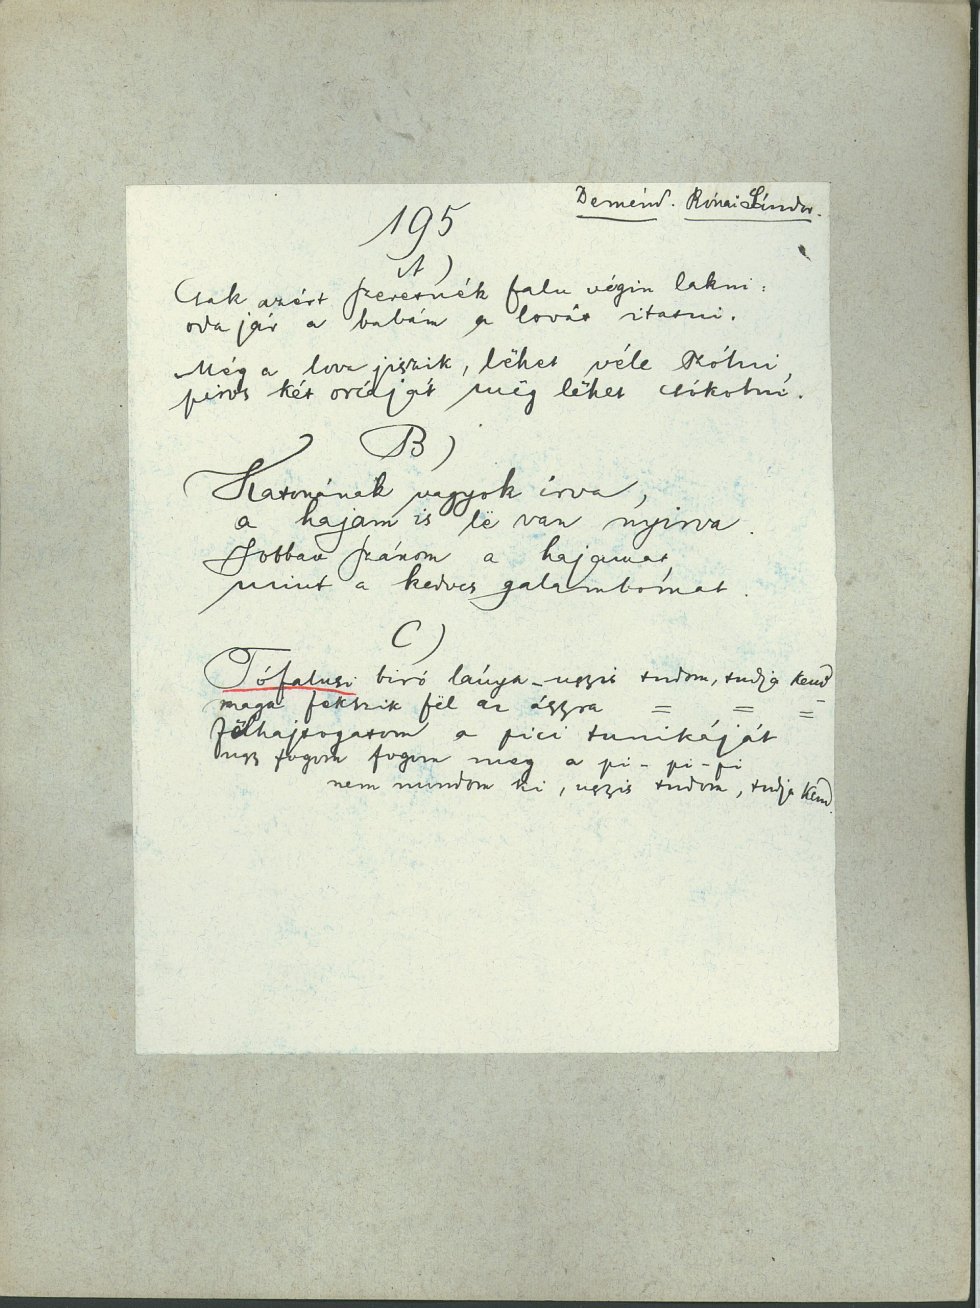 Deménd. Rónai Sándor.
195
A)
Csak azért szeretnék falu végin lakni:
oda jár a babám a lovát itatni.
Még a lova jiszik, lëhet véle szólni,
piros két orcáját még lëhet csókolni.
B)
Katonának vagyok írva,
a hajam is lë van nyirva.
Jobban szánom a hajamat
mint a kedves galambomat.
C)
Tófalusi biró lánya - ugyis tudom, tudja kend
maga fekszik fël az ágyra = = =
fëlhajtogatom a pici tunikáját
ugy fogom fogom meg a pi - pi - pi
nem mondom ki, ugyis tudom, tudja kend.